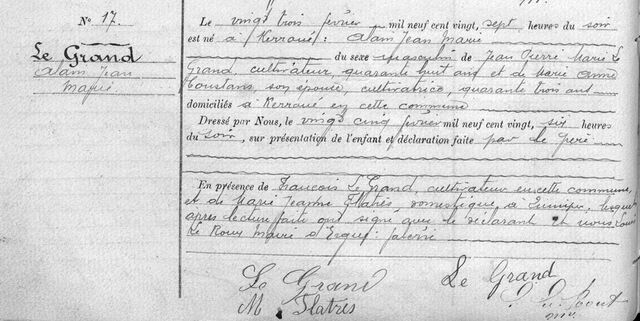 N° 17.
Le Grand
Alain Jean
Marie
Le vingt trois février mil neuf cent vingt, sept heures du soir
est né à (Kerroué): Alain Jean Marie
du sexe masculin de Jean Pierre Marie Le
Grand, cultivateur, quarante huit ans et de Marie Anne
Coustans, son épouse, cultivatrice, quarante trois ans
domiciliés à Kerroué en cette commune
Dressé par Nous, le vingt cinq février mil neuf cent vingt, six heures
du soir, sur présentation de l'enfant et déclaration faite par le père
En présence de François Le Grand, cultivateur en cette commune,
et de Marie Jeanne Flatrès domestique, à Quimper, lesquels
après lecture faite ont signé avec le déclarant et nous Louis
Le Roux Maire d'Ergué
Le Grand
Le Grand
M Flatrès